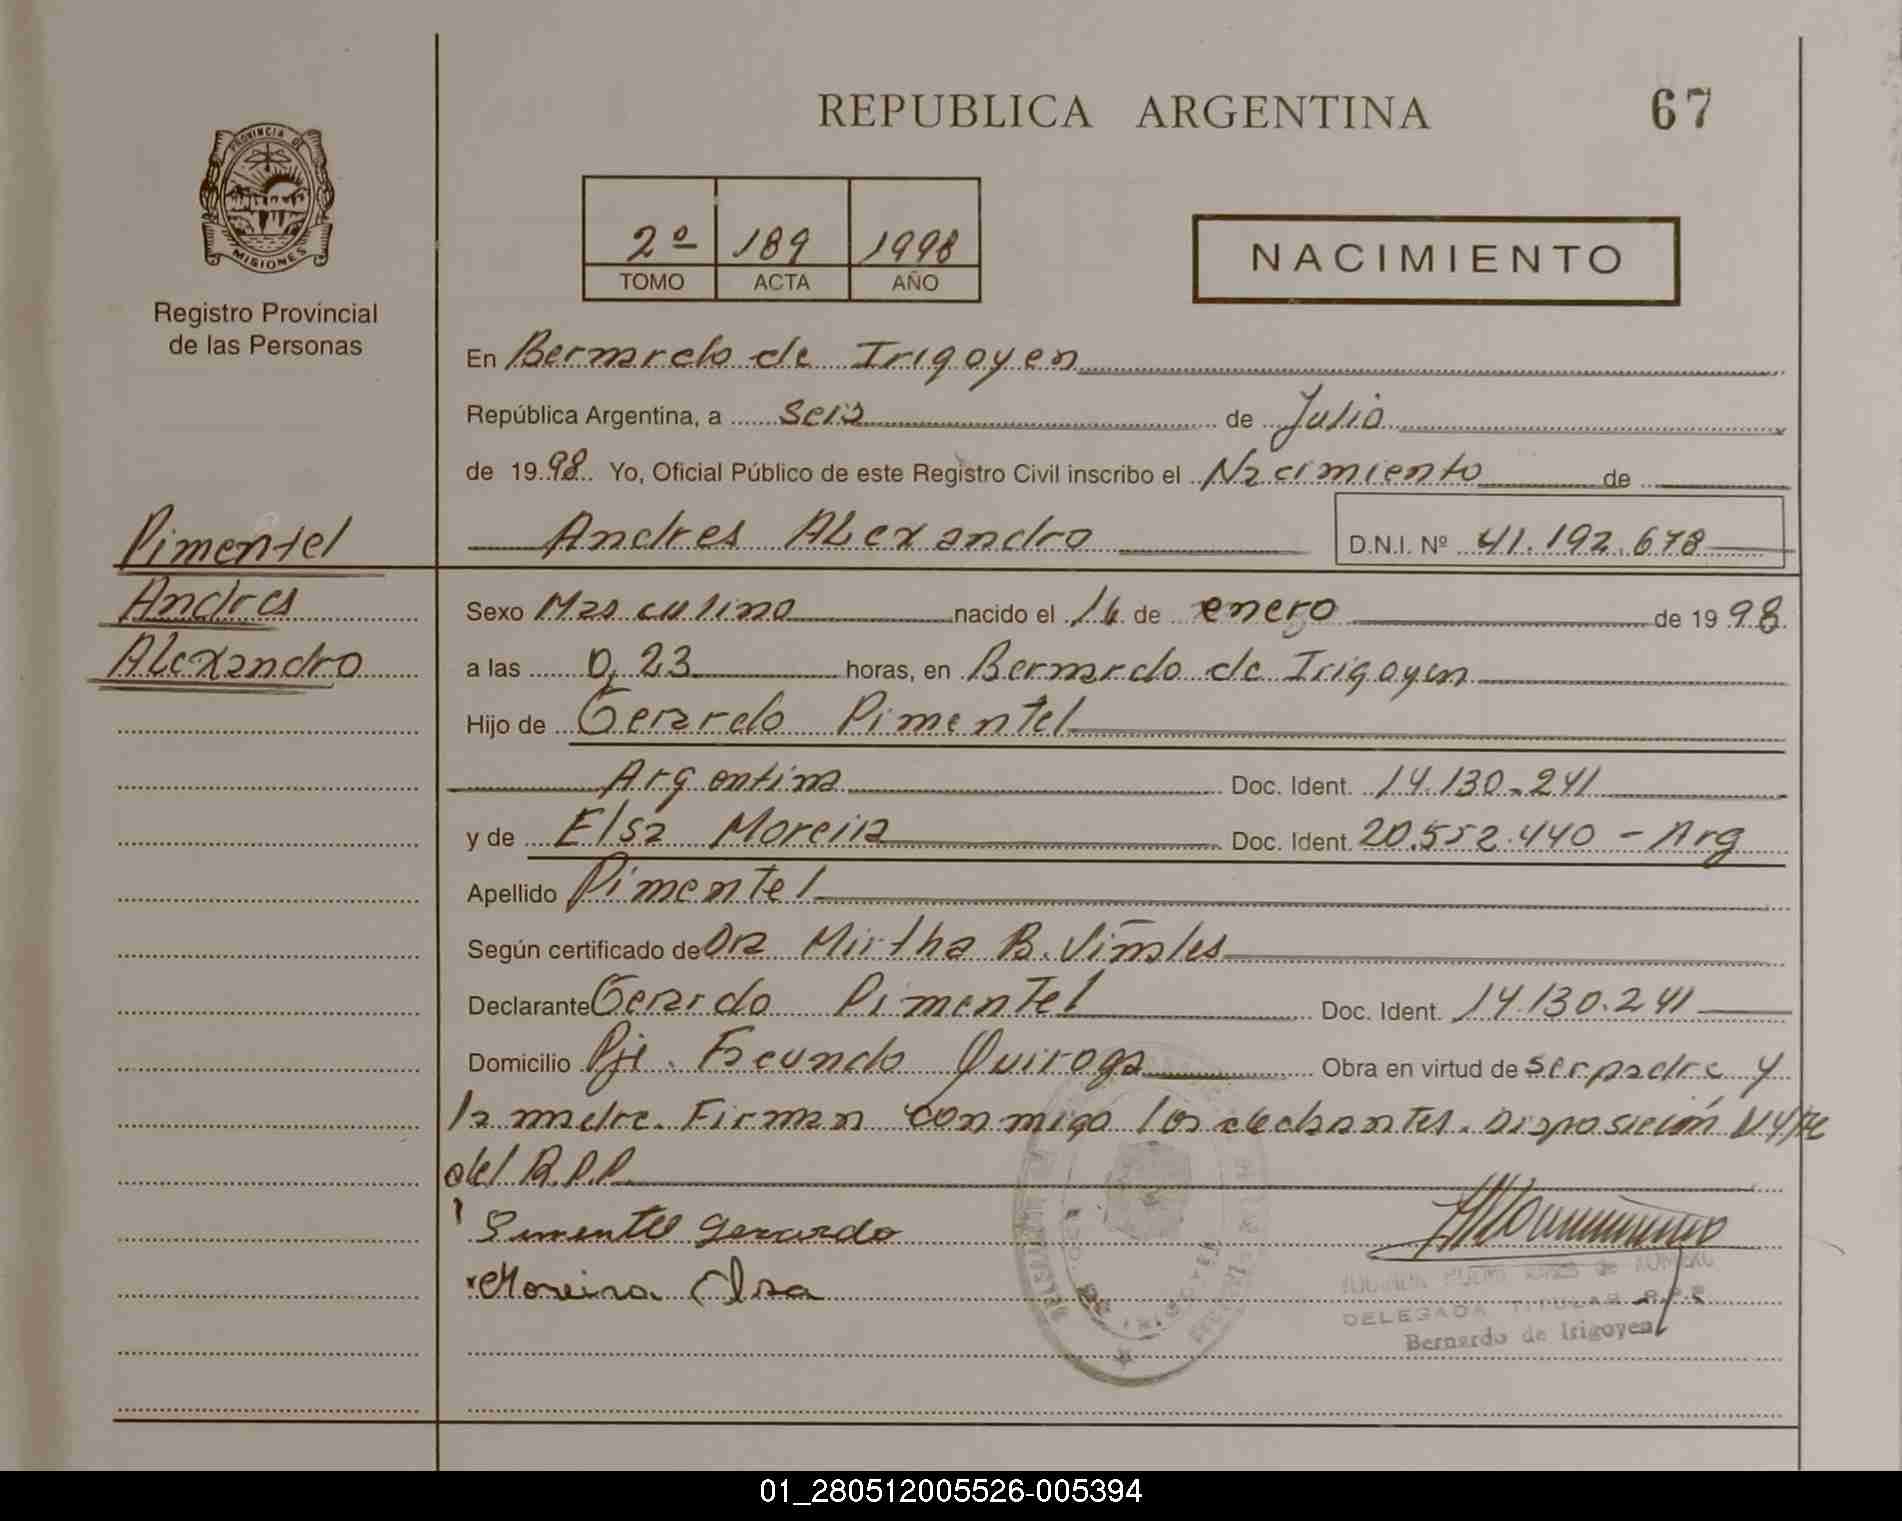 REPUBLICA ARGENTINA
67
PROVINCIA DE
MISIONES
Registro Provincial
de las Personas
2º 189 1998
TOMO ACTA AÑO
NACIMIENTO
En Bernardo de Irigoyen
República Argentina, a seis de Julio
de 1998 Yo, Oficial Público de este Registro Civil inscribo el Nacimiento de
Andres Alexandro
D.N.I. Nº 41.192.678
Pimentel
Andres
Alexandro
Sexo Masculino nacido el 16 de enero de 1998
a las 0,23 horas, en Bernardo de Irigoyen
Hijo de Gerardo Pimentel
Argentina Doc. Ident. 14.130.241
y de Elsa Moreira Doc. Ident. 20.552.440 - Arg
Apellido Pimentel
Según certificado de Dra Mirtha B. Viñales
Declarante Gerardo Pimentel Doc. Ident. 14.130.241
Domicilio Pje. Facundo Quiroga Obra en virtud de ser padre y
la madre. Firman conmigo los declarantes. Disposición
del R.P.P.
Pimentel Gerardo
Moreira Elsa
DELEGADA TITULAR R.P.P.
Bernardo de Irigoyen
01_280512005526-005394